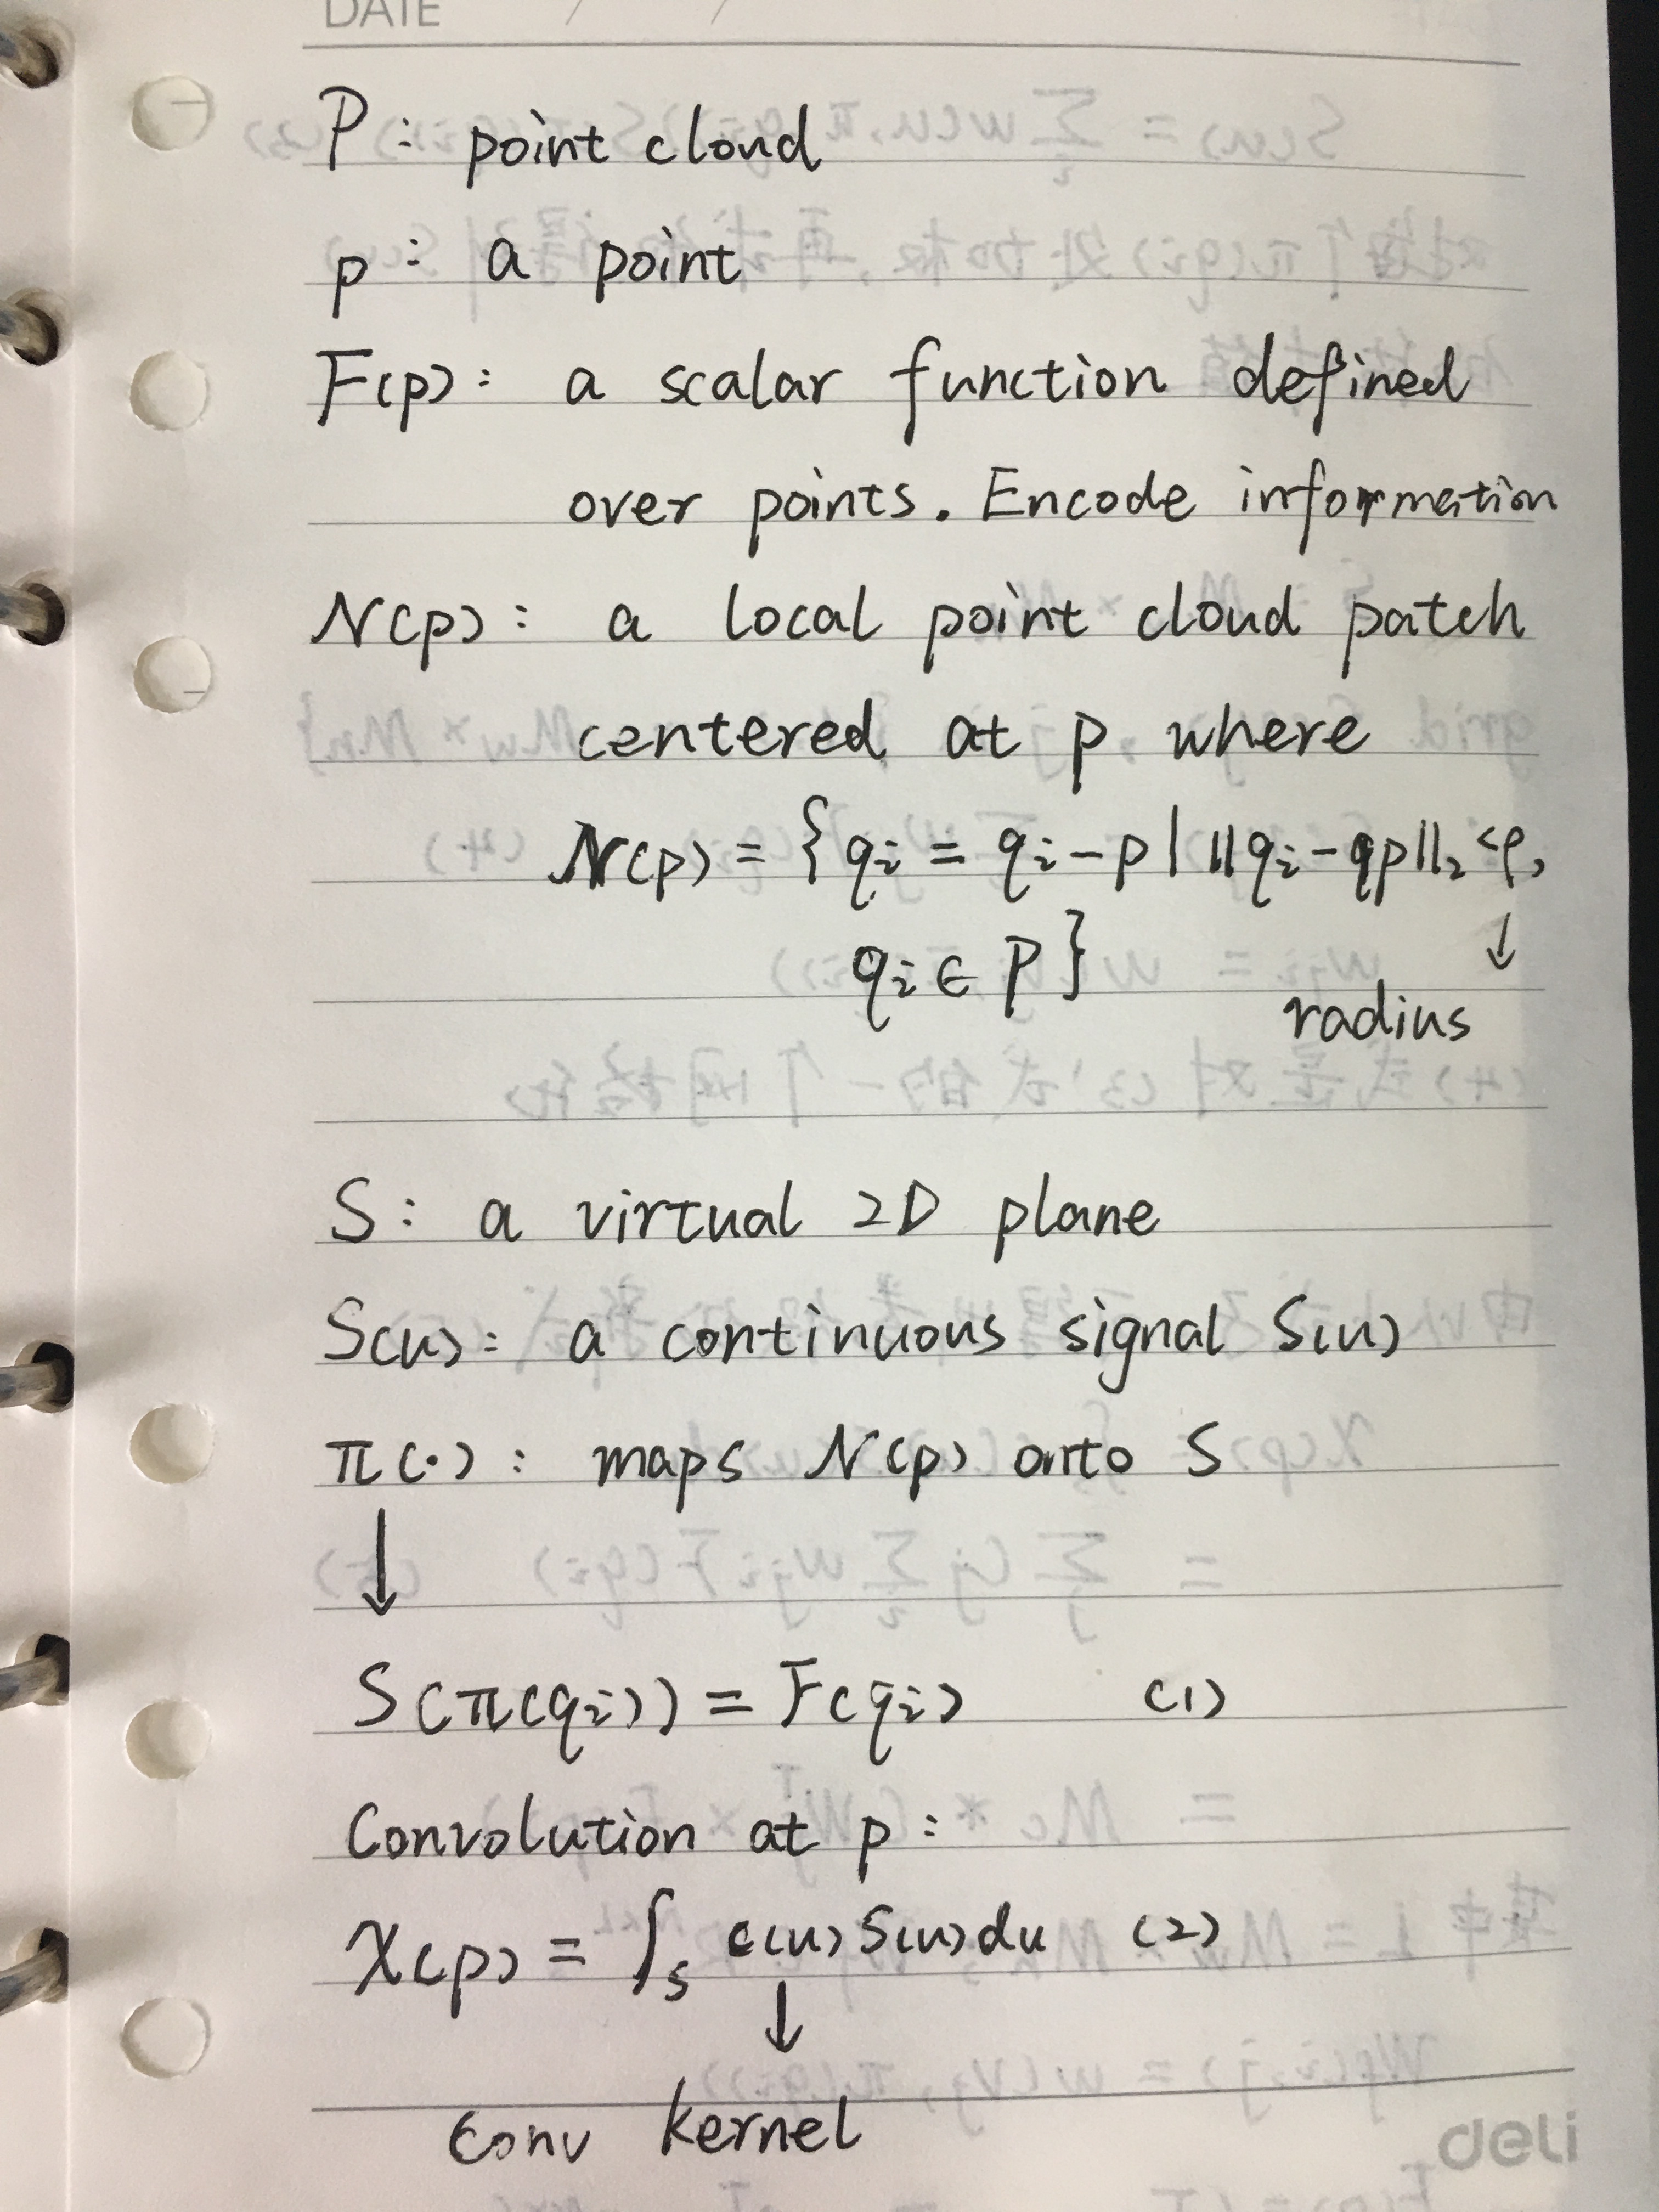 DATE / /
P: point cloud
p: a point
F(p): a scalar function defined
over points. Encode information
N(p): a local point cloud patch
centered at p where
N(p) = {qi = qi - p | ||qi - qp||₂ < ρ,
qi ∈ P}
↓
radius
S: a virtual 2D plane
S(u): a continuous signal S(u)
π(·): maps N(p) onto S
↓
S(π(qi)) = F(qi) (1)
Convolution at p:
X(p) = ∫_S c(u) S(u) du (2)
↓
conv kernel
deli